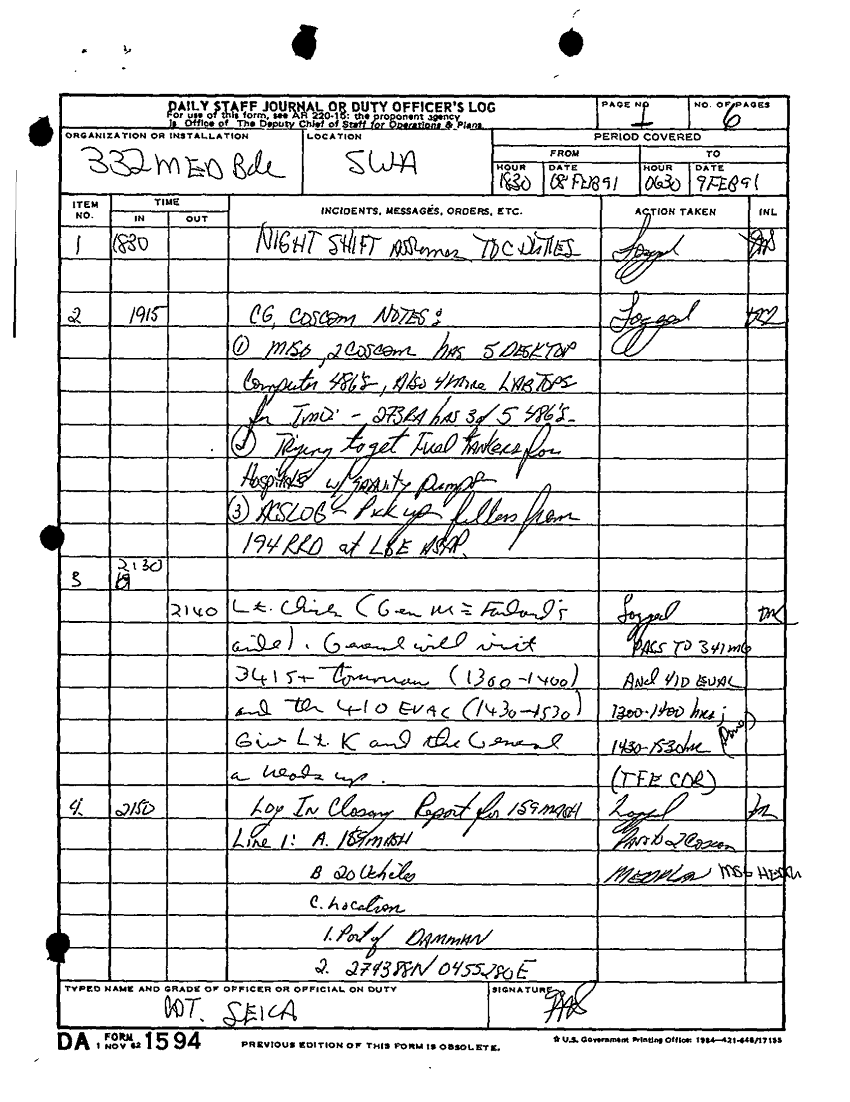 DAILY STAFF JOURNAL OR DUTY OFFICER'S LOG
For use of this form, see AR 220-15; the proponent agency
is Office of The Deputy Chief of Staff for Operations & Plans.
PAGE NO
1
NO. OF PAGES
6
ORGANIZATION OR INSTALLATION
332 MED Bde
LOCATION
SWA
PERIOD COVERED
FROM
TO
HOUR
1830
DATE
08 FEB 91
HOUR
0630
DATE
9 FEB 91
ITEM NO.
TIME
IN
OUT
INCIDENTS, MESSAGES, ORDERS, ETC.
ACTION TAKEN
INL
1 1830 NIGHT SHIFT Assumes TOC Duties
2 1915 CG, COSCOM NOTES:
① MISO, 2 COSCOM has 5 DESKTOP
Computer 486's, Also 4 more LABTOPS
for - 273RA has 3 of 5 486's.
② Trying to get Fuel tankers for
Hospitals w/gravity Pumps
③ ACSLOG - Pick up fillers from
194 RRD at LBE ASAP.
3 2130
2140 Lt. (Gen Mc Farland's
aide). General will visit
341st (1300-1400)
PASS TO 341 MG
and the 410 EVAC (1430-1530)
And 410 EVAC
1300-1400 hrs;
Give Lt. K and the General
1430-1530 hr
a heads up.
(TFE CDR)
4. 2150 Log In Closing Report for 159 MASH
Line 1: A. 159 MASH
2 Coscom
B 20 Vehicles
MSG
C. Location
1. Port of DAMMAN
2. 274388N 0455280E
TYPED NAME AND GRADE OF OFFICER OR OFFICIAL ON DUTY
SEICA
SIGNATURE
DA FORM 1 NOV 62 1594
PREVIOUS EDITION OF THIS FORM IS OBSOLETE.
☆ U.S. Government Printing Office: 1984-421-646/17155